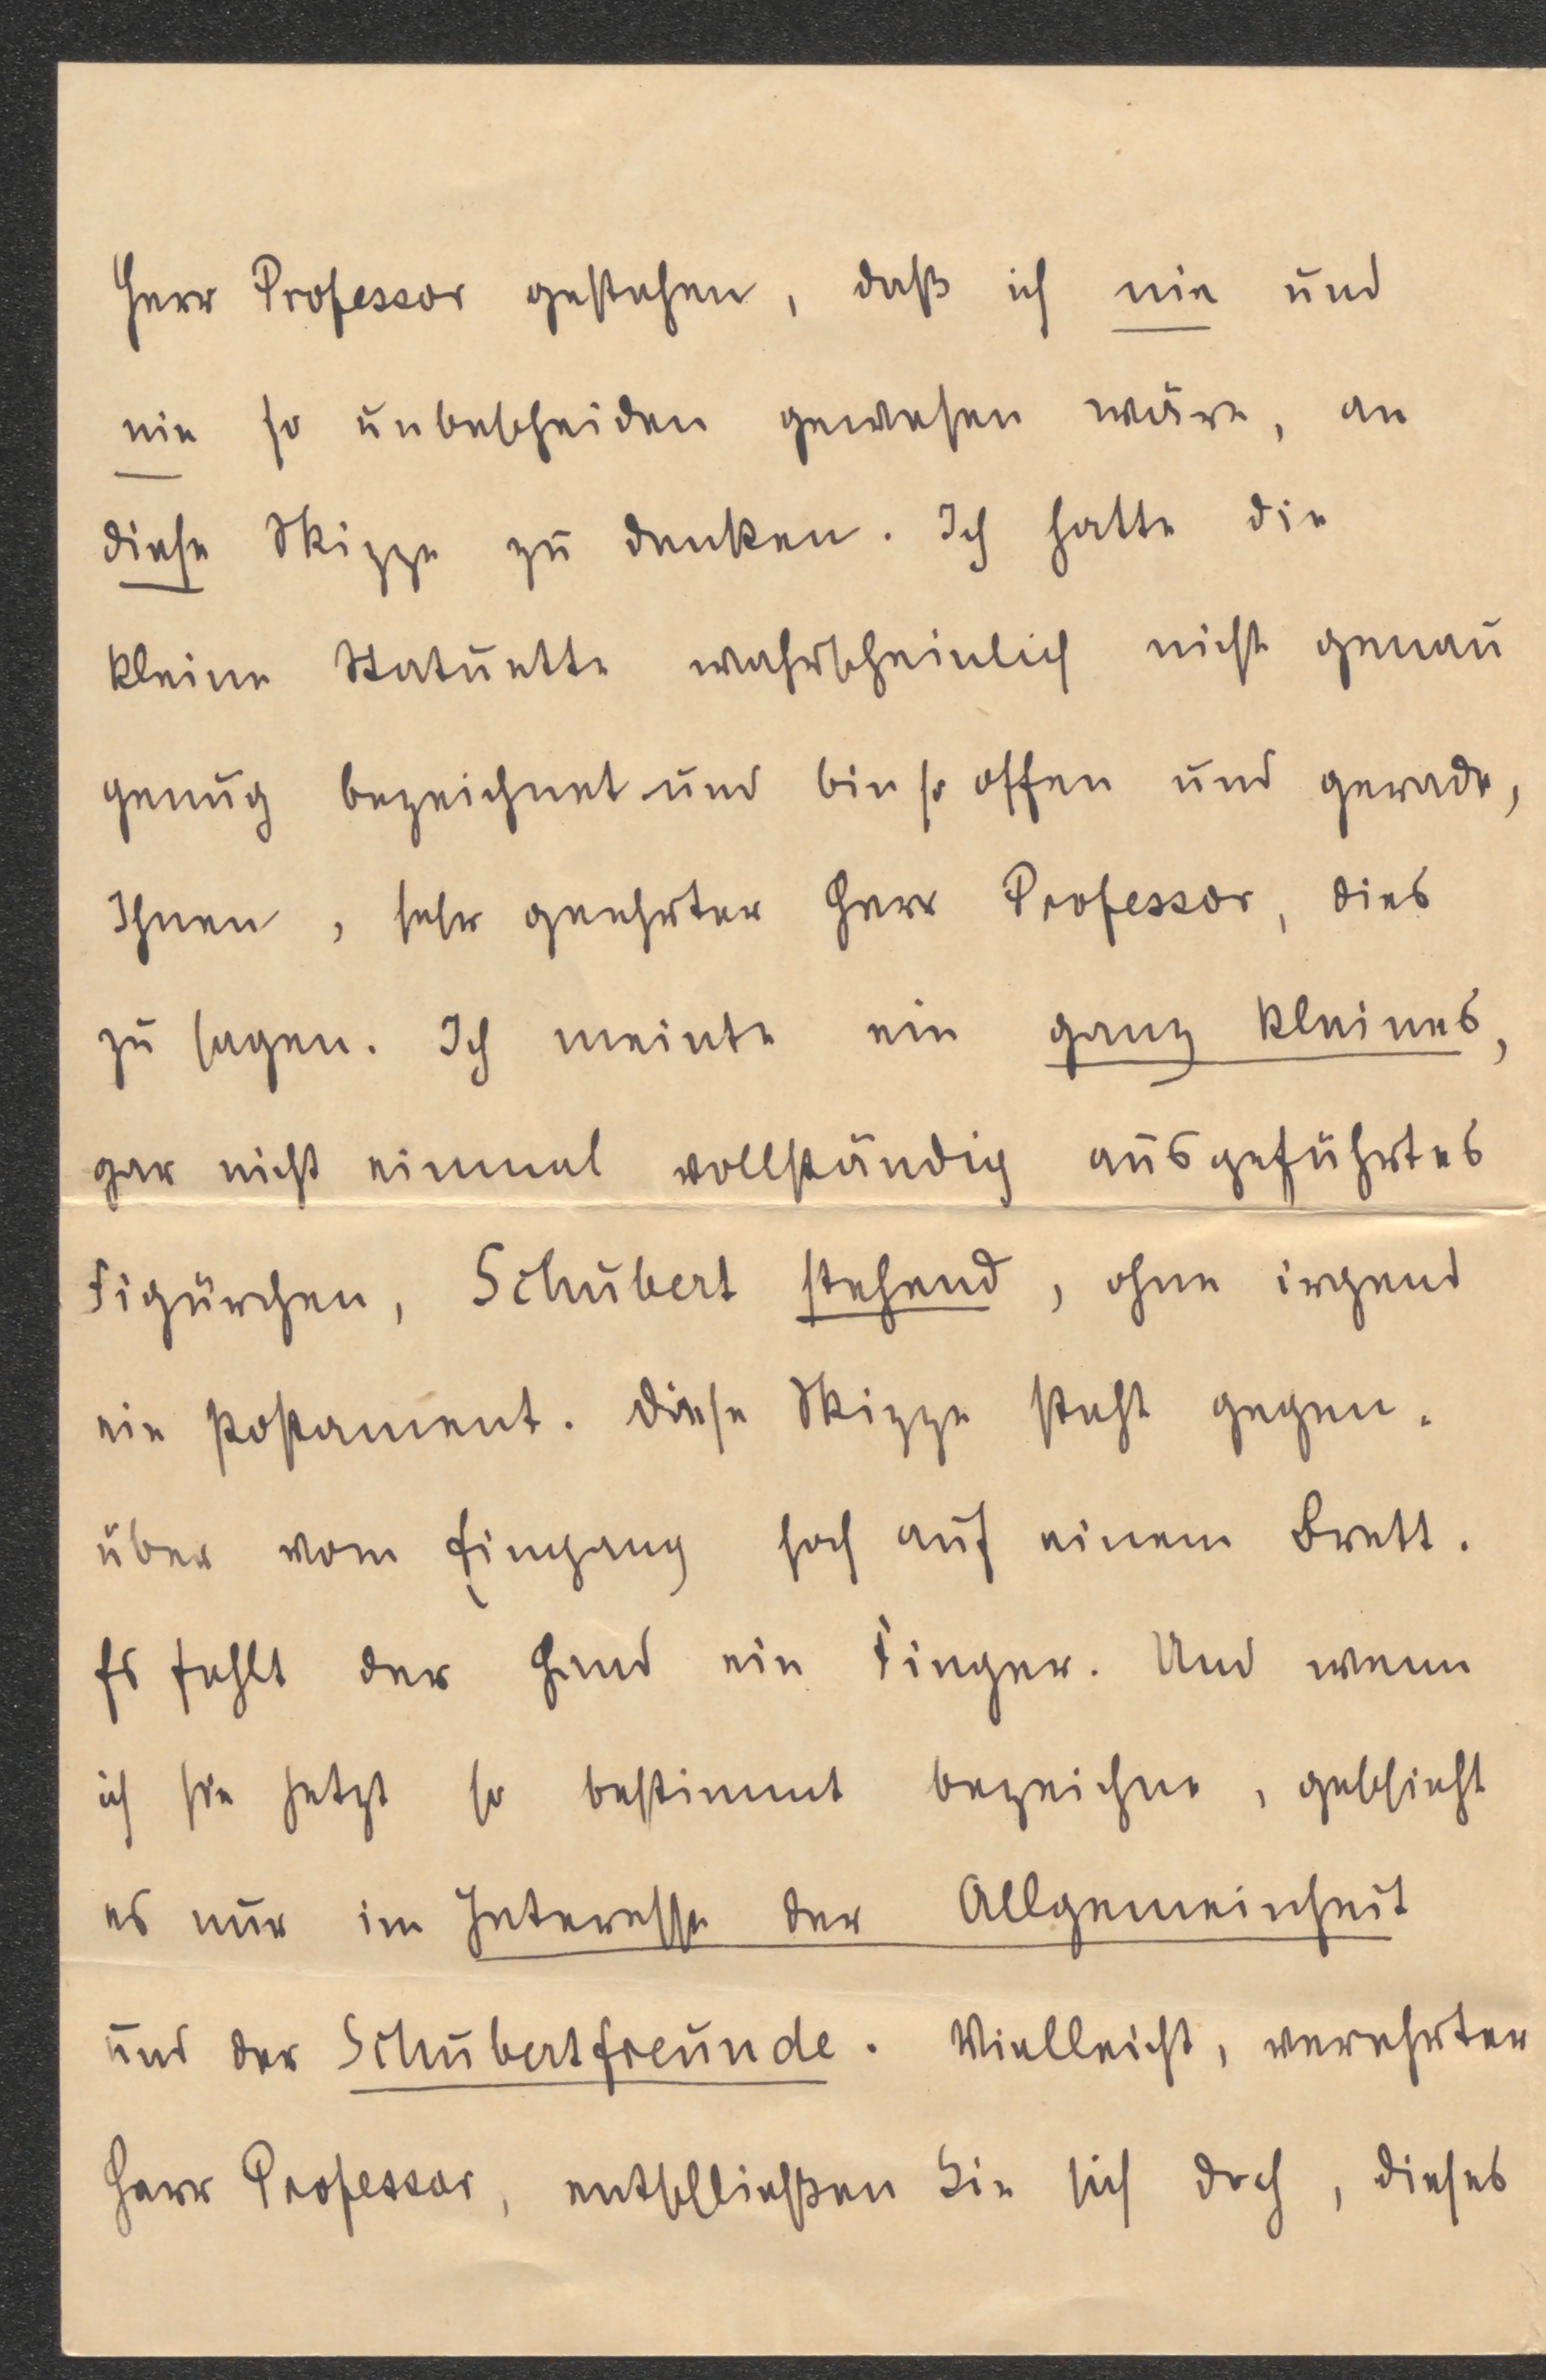 Herr Professor gestehen, daß ich nie und
nie so unbescheiden gewesen wäre, an
diese Skizze zu denken. Ich hatte die
kleine Statuette wahrscheinlich nicht genau
genug bezeichnet und bin so offen und gerade,
Ihnen, sehr geehrter Herr Professor, dies
zu sagen. Ich meinte ein ganz kleines,
gar nicht einmal vollständig ausgeführtes
Figürchen, Schubert stehend, ohne irgend
ein Postament. Diese Skizze steht gegen-
über vom Eingang hoch auf einem Brett.
Es fehlt der Hand ein Finger. Und wenn
ich sie jetzt so bestimmt bezeichne, geschieht
es nur im Interesse der Allgemeinheit
und der Schubertfreunde. Vielleicht, verehrter
Herr Professor, entschließen Sie sich doch, dieses